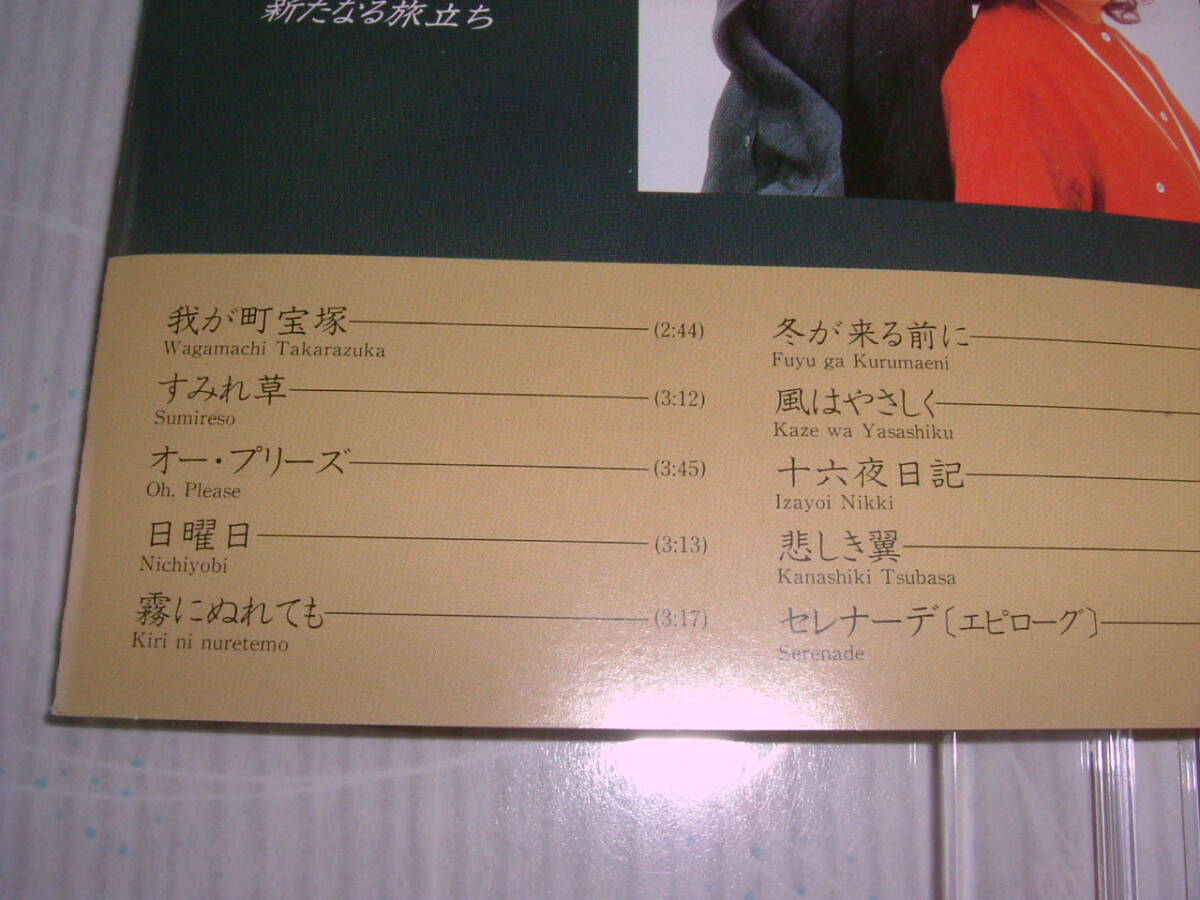 新たなる旅立ち
我が町宝塚 (2:44)
Wagamachi Takarazuka
すみれ草 (3:12)
Sumireso
オー・プリーズ (3:45)
Oh. Please
日曜日 (3:13)
Nichiyobi
霧にぬれても (3:17)
Kiri ni nuretemo
冬が来る前に
Fuyu ga Kurumaeni
風はやさしく
Kaze wa Yasashiku
十六夜日記
Izayoi Nikki
悲しき翼
Kanashiki Tsubasa
セレナーデ〔エピローグ〕
Serenade